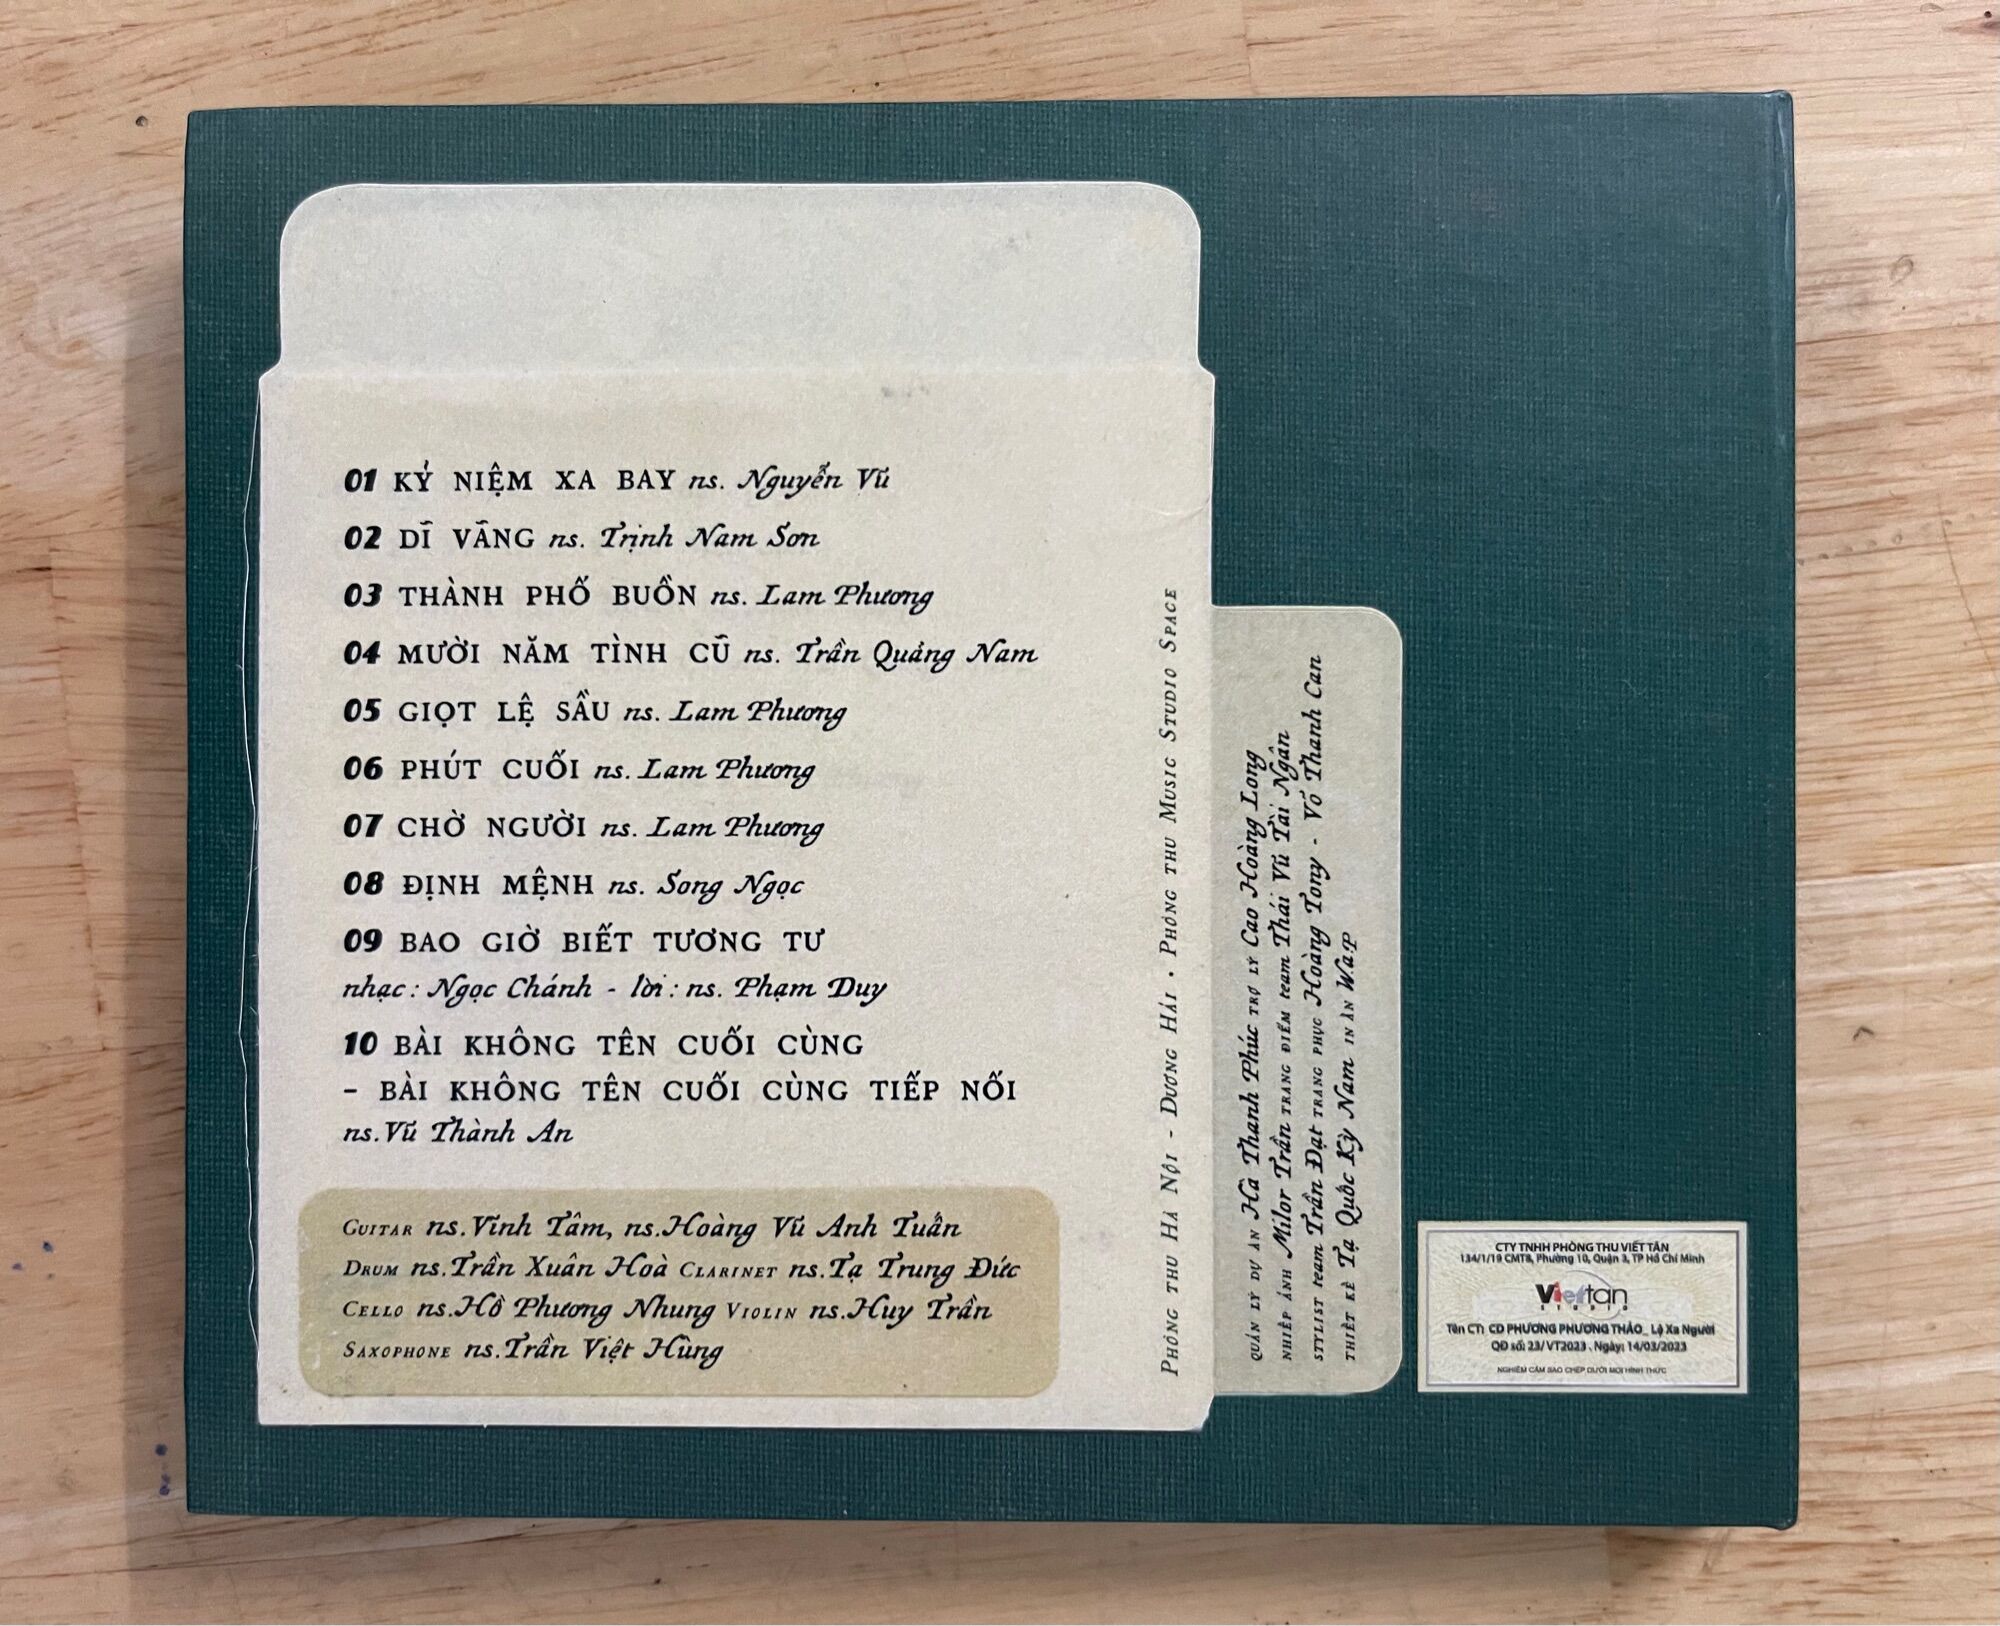 01 KỶ NIỆM XA BAY ns. Nguyễn Vũ
02 DĨ VÃNG ns. Trịnh Nam Sơn
03 THÀNH PHỐ BUỒN ns. Lam Phương
04 MƯỜI NĂM TÌNH CŨ ns. Trần Quảng Nam
05 GIỌT LỆ SẦU ns. Lam Phương
06 PHÚT CUỐI ns. Lam Phương
07 CHỜ NGƯỜI ns. Lam Phương
08 ĐỊNH MỆNH ns. Song Ngọc
09 BAO GIỜ BIẾT TƯƠNG TƯ
nhạc : Ngọc Chánh - lời : ns. Phạm Duy
10 BÀI KHÔNG TÊN CUỐI CÙNG
– BÀI KHÔNG TÊN CUỐI CÙNG TIẾP NỐI
ns.Vũ Thành An
GUITAR ns.Vĩnh Tâm, ns.Hoàng Vũ Anh Tuấn
DRUM ns.Trần Xuân Hoà CLARINET ns.Tạ Trung Đức
CELLO ns.Hồ Phương Nhung VIOLIN ns.Huy Trần
SAXOPHONE ns.Trần Việt Hùng
PHÒNG THU HÀ NỘI - DƯƠNG HẢI • PHÒNG THU MUSIC STUDIO SPACE
QUẢN LÝ DỰ ÁN Hà Thanh Phúc TRỢ LÝ Cao Hoàng Long
NHIẾP ẢNH Milor Trần TRANG ĐIỂM team Thái Vũ Tài Ngân
STYLIST team Trần Đạt TRANG PHỤC Hoàng Tony - Võ Thanh Can
THIẾT KẾ Tạ Quốc Kỳ Nam IN ẤN W.a.P
CTY TNHH PHÒNG THU VIẾT TÂN
134/1/19 CMT8, Phường 10, Quận 3, TP Hồ Chí Minh
Viettan
STUDIO
Tên CT: CD PHƯƠNG PHƯƠNG THẢO_ Lệ Xa Người
QĐ số: 23/VT2023 . Ngày: 14/03/2023
NGHIÊM CẤM SAO CHÉP DƯỚI MỌI HÌNH THỨC